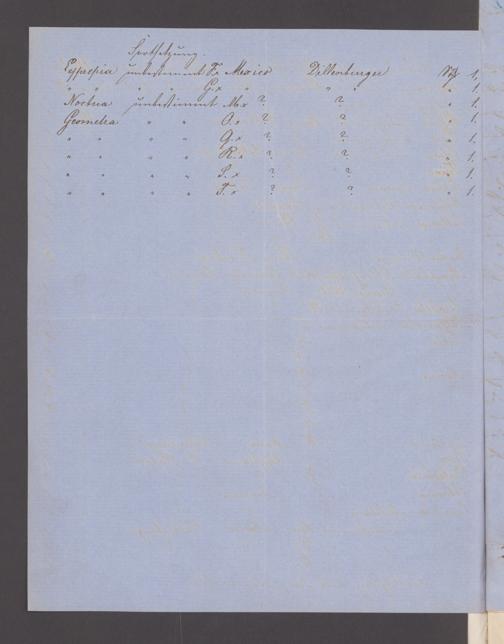 Fortsetzung.
unbestimmt F. × Mexico Dillenburger 1.
" " " G. × " " " " 1.
Noctua unbestimmt M. × ? ? " 1.
Geometra " " O. × ? ? " 1.
" " " " Q. × ? ? " 1.
" " " " R. × ? ? " 1.
" " " " S. × ? ? " 1.
" " " " T. × ? ? " 1.